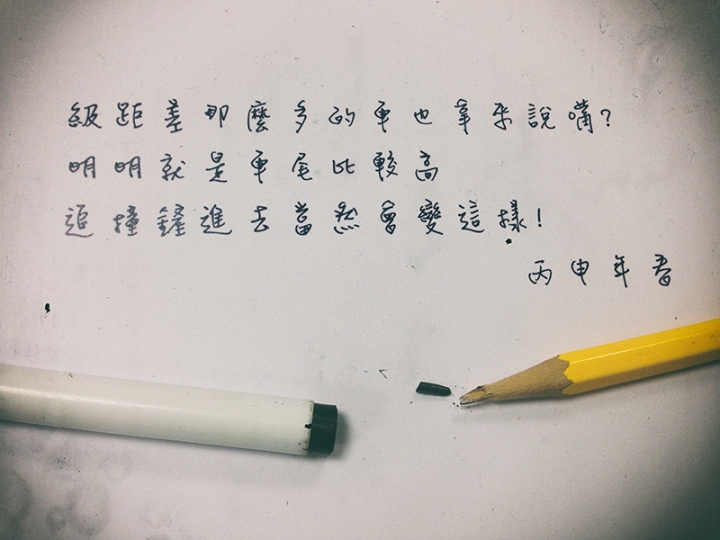 級距差那麼多的車也拿來說嘴?
明明就是車尾比較高
追撞鏟進去當然會變這樣!
丙申年春